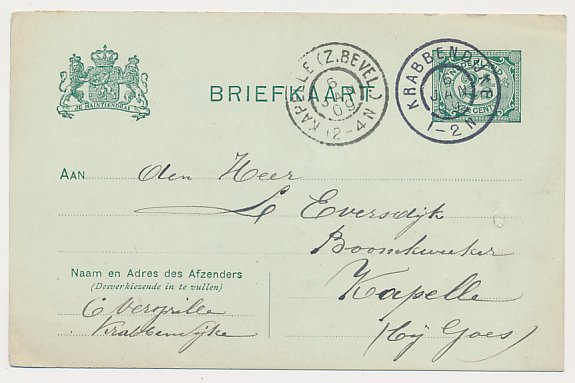 JE MAINTIENDRAI
BRIEFKAART
KAPELLE (Z. BEVEL.)
6
JAN
09
12-4N
KRABBENDIJKE
6
JAN
1-2N
NEDERLAND
CENT
AAN den Heer
L Eversdijk
Boomkweeker
Kapelle
(bij Goes)
Naam en Adres des Afzenders
(Desverkiezende in te vullen)
C
Krabbendijke